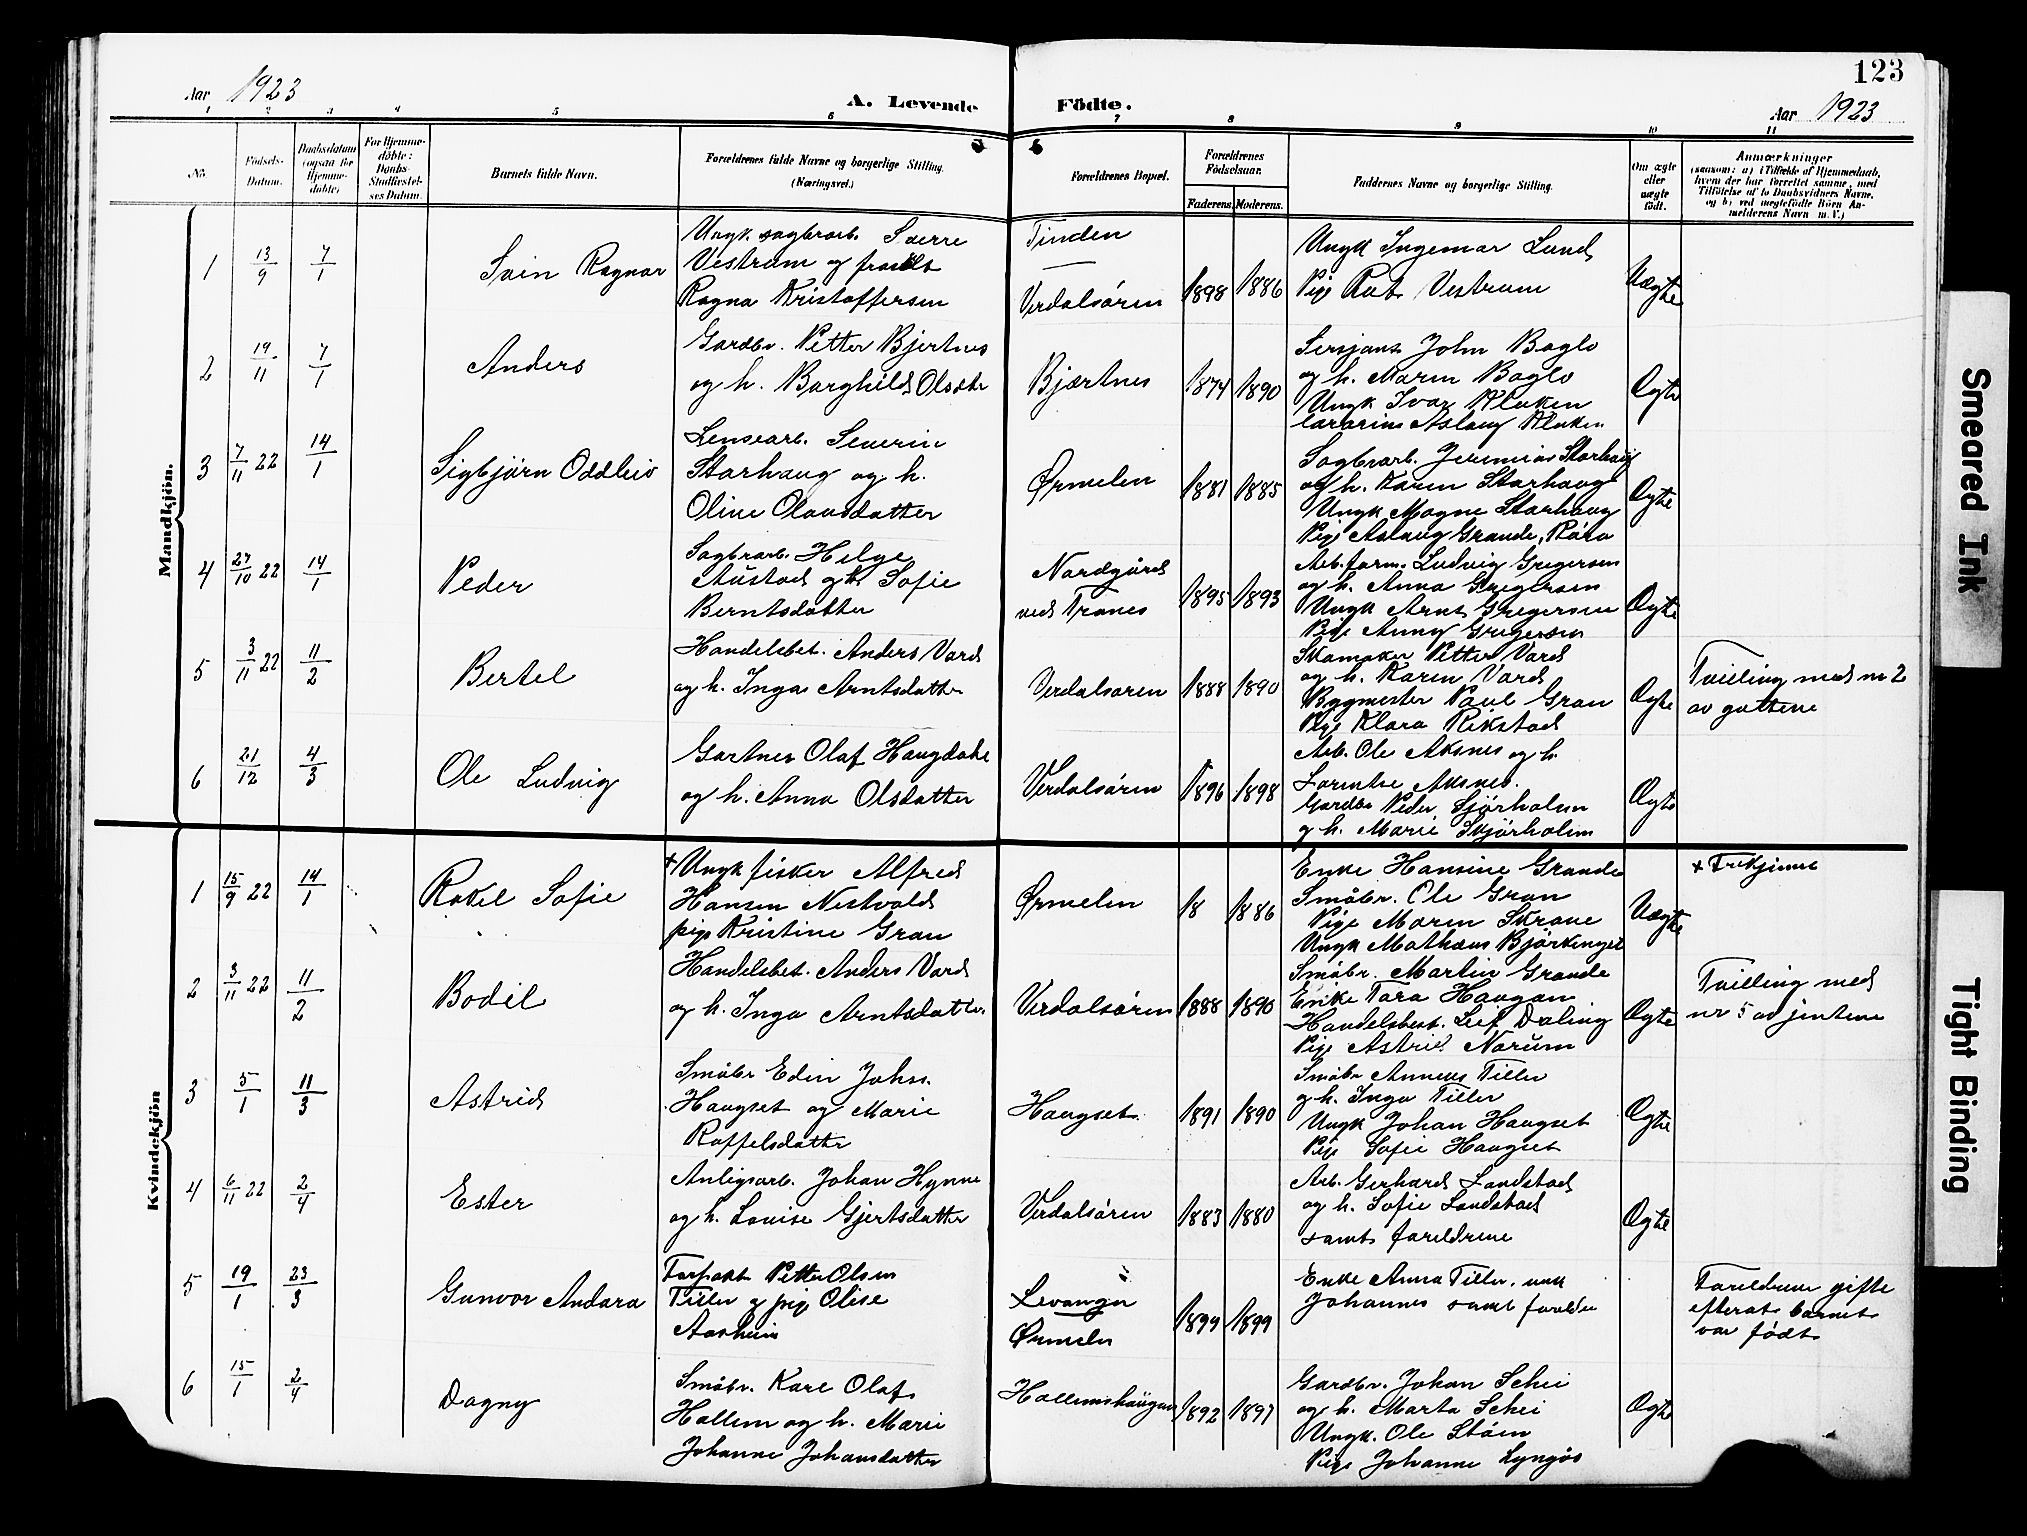 123
Aar 1923
A. Levende Födte.
Aar 1923
1 2 3 4 5 6 7 8 9 10 11
No.
Födsels-Datum.
Daabsdatum (ogsaa for Hjemme-döbte).
For Hjemme-döbte: Daabs-Stadfæstel-ses Datum.
Barnets fulde Navn.
Forældrenes fulde Navne og borgerlige Stilling.
(Næringsvei.)
Forældrenes Bopæl.
Forældrenes Födselsaar.
Faderens. Moderens.
Faddernes Navne og borgerlige Stilling.
Om ægte eller uægte født.
Anmærkninger
(saasom: a) i Tilfælde af Hjemmedaab,
hvem der har forrettet samme, med
Tilföielse af to Daabsvidners Navne,
og b) ved uægtefødte Börn An-
melderens Navn m. V.)
Mandkjön.
1 13/9 7/1 Svin Ragnar
Ungk. sagbrarb. Sverre
Vestrum og
Ragna Kristoffersen
Tinden
Verdalsören
1898 1886
Ungk Ingemar Lund
Pige Rut Vestrum
Uægte
2 19/11 7/1 Anders
Gardbr. Petter Bjertnes
og h. Borghild Olsdtr
Bjærtnes
1874 1890
Sersjant John Baglo
og h. Maren Baglo
Ungk Ivar Kluken
lærarinne Aslaug Kluken
Ægte
3 7/11 22 14/1 Sigbjörn Oddleiv
Lensearb. Severin
Storhaug og h.
Oline Olausdatter
Ørmelen
1881 1885
Sagbrarb. Jeremias Storhaug
og h. Karen Storhaug
Ungk Magne Storhaug
Pige Aslaug Grande, Röra
Ægte
4 27/10 22 14/1 Peder
Sagbrarb. Helge
Austad og h. Sofie
Berntsdatter
Nordgård
ved Trones
1895 1893
Arb.form. Ludvig Gregersen
og h. Anna Gregersen
Ungk Arnt Gregersen
Pige Anny Gregersen
Ægte
5 3/11 22 11/2 Bertel
Handelsbet. Anders Vard
og h. Inga Arntsdatter
Verdalsøren
1888 1890
Skomaker Petter Vard
og h. Karen Vard
Byggmester Paul Gran
Pige Klara Rekstad
Ægte
Tvilling med nr 2
av guttene
6 21/12 4/3 Ole Ludvig
Gartner Olaf Haugdahl
og h. Anna Olsdatter
Verdalsøren
1896 1898
Arb. Ole Aksnes og h.
Lorentse Aksnes.
Gardbr Peder Skjörholm
og h. Marie Skjörholm
Ægte
Kvindekjön
1 15/9 22 14/1 Rakel Sofie
+ Ungk fisker Alfred
Hansen Nestvold
pige Kristine Gran
Ørmelen
18 1886
Enke Hansine Grande
Småbr. Ole Gran
Pige Maren Skrove
Ungk Mathæus Björkenget
Uægte
+ Frikjennt
2 3/11 22 11/2 Bodil
Handelsbet. Anders Vard
og h. Inga Arntsdatter
Verdalsøren
1888 1890
Småbr. Martin Grande
Enke Tora Haugan
Handelsbest. Leif Daling
Pige Astrid Norum
Ægte
Tvilling med
nr 5 av jentene
3 5/1 11/3 Astrid
Småbr Edin Johns.
Haugset og Marie
Roffelsdatter
Haugset
1891 1890
Småbr Anneus Tiller
og h. Inga Tiller
Ungk Johan Haugset
Pige Sofie Haugset
Ægte
4 6/11 22 2/4 Ester
Anlegsarb. Johan Hynne
og h. Louise Gjertsdatter
Verdalsøren
1883 1880
Arb. Gerhard Landstad
og h. Sofie Landstad
samt foreldrene
Ægte
5 19/1 23/3 Gunvor Andora
Forpakt Petter Olsen
Tiller og pige Olise
Aasheim
Levanger
Ørmelen
1899 1899
Enke Anna Tiller. ungk
Johannes samt foreldre
Foreldrene gifte
efterat barnet
var født
6 15/1 2/4 Dagny
Småbr. Karl Olaf
Hallem og h. Marie
Johanne Johansdatter
Hallemshaugan
1892 1897
Gardbr. Johan Schei
og h. Marta Schei
Ungk. Ole Stöen
Pige Johanne Lyngås
Ægte
Smeared Ink
Tight Binding